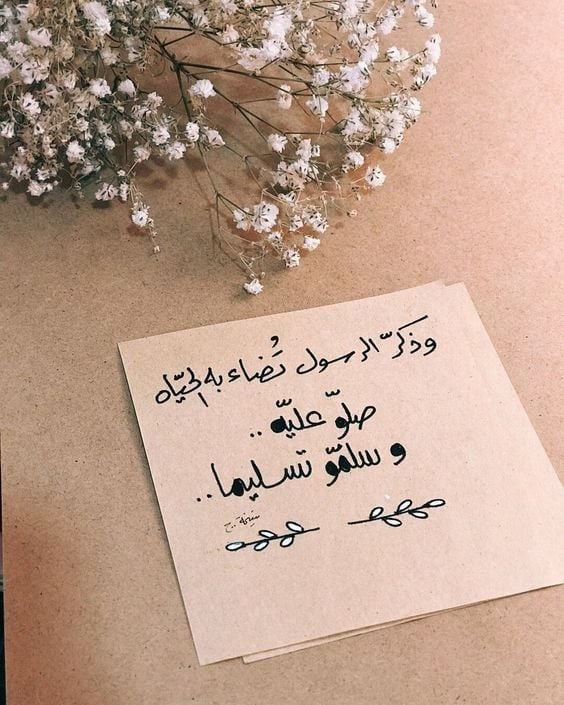 وذكرّ الرسول تُضاء به الحيّاه
صلوّ عليّه ..
و سلموّ تسليما ..